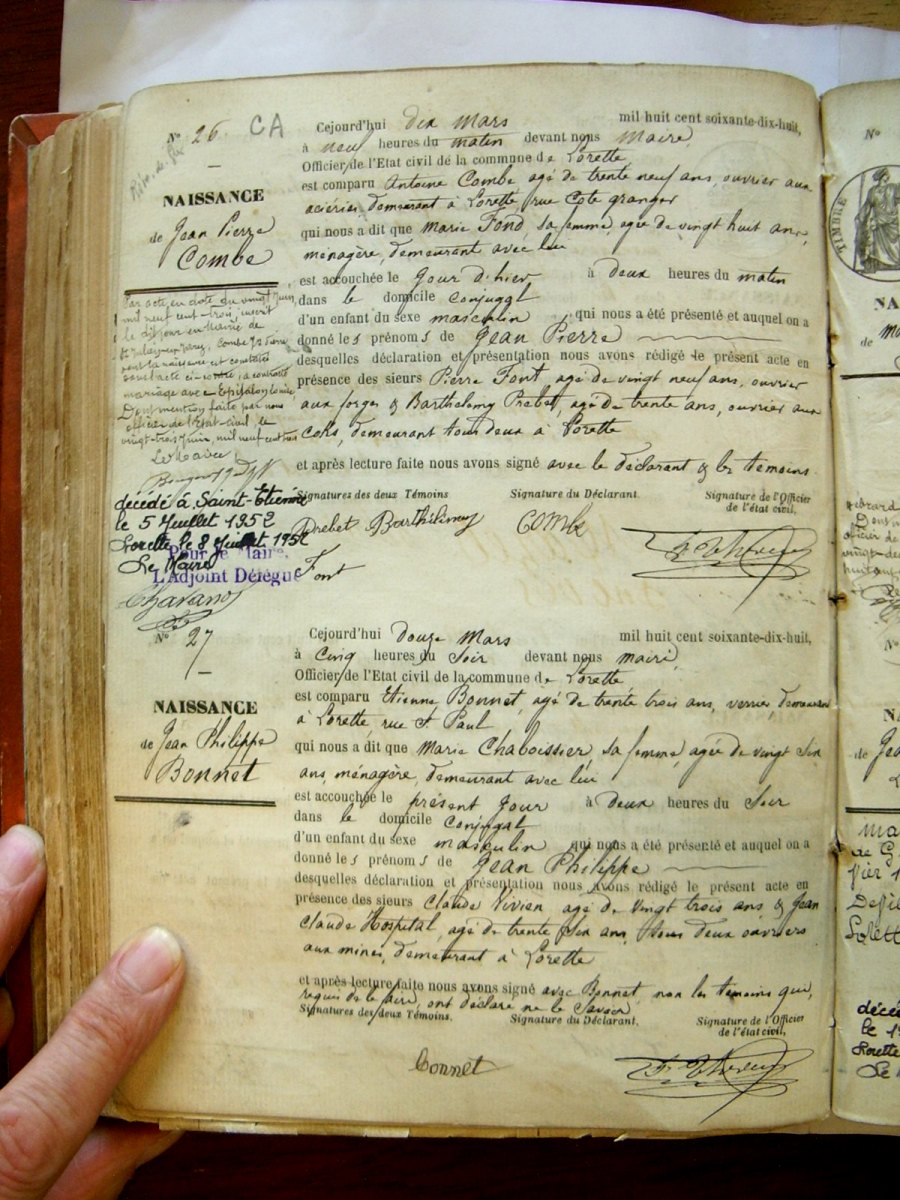 N° 26 CA
NAISSANCE
de Jean Pierre
Combe
Par acte en date du vingt Juin
mil neuf cent trois, inscrit
le dit jour en mairie de
Combe Jn Pierre
dont la naissance est constatée
a contracté
mariage avec Epitalon
Dont mention faite par nous
officier de l'Etat-civil, le
vingt-trois Juin, mil neuf cent trois
Le Maire
décédé à Saint-Etienne
le 5 Juillet 1952
Lorette le 8 Juillet 1952
Le Maire
Pour le Maire,
L'Adjoint Délégué
Chavano
Cejourd'hui dix Mars mil huit cent soixante-dix-huit,
à neuf heures du matin devant nous Maire,
Officier de l'Etat civil de la commune de Lorette
est comparu Antoine Combe agé de trente neuf ans, ouvrier aux
aciéries demeurant à Lorette rue Cote granger
qui nous a dit que Marie Fond, sa femme, agée de vingt huit ans,
ménagère, demeurant avec lui
est accouchée le Jour d'hier à deux heures du matin
dans le domicile conjugal
d'un enfant du sexe masculin, qui nous a été présenté et auquel on a
donné les prénoms de Jean Pierre
desquelles déclaration et présentation nous avons rédigé le présent acte en
présence des sieurs Pierre Font, agé de vingt neuf ans, ouvrier
aux forges & Barthelemy Prebet, agé de trente ans, ouvrier aux
coks, demeurant tous deux à Lorette
et après lecture faite nous avons signé avec le déclarant & les témoins
Signatures des deux Témoins Signature du Déclarant. Signature de l'Officier
de l'état civil,
Prebet Barthélémy Combe
Font
N° 27
NAISSANCE
de Jean Philippe
Bonnet
Cejourd'hui douze Mars mil huit cent soixante-dix-huit,
à Cinq heures du Soir devant nous maire,
Officier de l'Etat civil de la commune de Lorette
est comparu Etienne Bonnet, agé de trente trois ans, verrier demeurant
à Lorette, rue St Paul
qui nous a dit que Marie Chaboissier, sa femme, agée de vingt six
ans, ménagère, demeurant avec lui
est accouchée le présent Jour à deux heures du Soir
dans le domicile conjugal
d'un enfant du sexe masculin qui nous a été présenté et auquel on a
donné les prénoms de Jean Philippe
desquelles déclaration et présentation nous avons rédigé le présent acte en
présence des sieurs Claude Vivien agé de vingt trois ans & Jean
Claude Hospital, agé de trente six ans, tous deux ouvriers
aux mines, demeurant à Lorette
et après lecture faite nous avons signé avec Bonnet, non les témoins qui,
requis de le faire, ont déclaré ne le Savoir
Signatures des deux Témoins. Signature du Déclarant. Signature de l'Officier
de l'état civil,
Bonnet
N°
TIMBRE
NA
de
N°
de Jea
décé
le 19
Lorette
Le